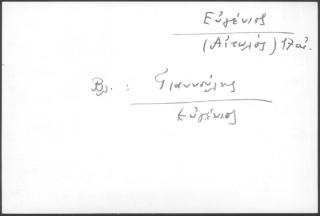 Εὐγένιος
(Αἰτωλός) 17 αἰ.
Βλ. : Γιαννούλης
Εὐγένιος